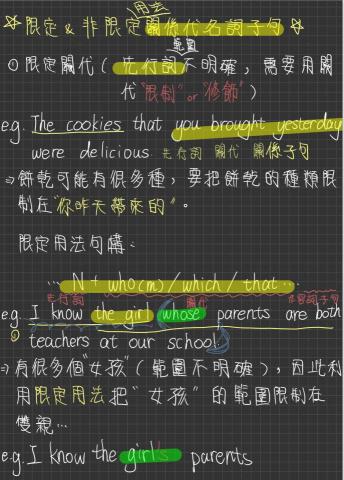 用法
☆限定 & 非限定關係代名詞子句☆
範圍
①限定關代(先行詞不明確,需要用關
代"限制" or "修飾")
e.g. The cookies that you brought yesterday
were delicious 先行詞 關代 關係子句
⇒餅乾可能有很多種,要把餅乾的種類限
制在"你昨天帶來的"。
限定用法句構:
… N + who(m) / which / that …
先行詞 關代
e.g. I know the girl (whose parents are both
② teachers at our school)
⇒有很多個"女孩"(範圍不明確),因此利
用限定用法把"女孩"的範圍限制在
雙親…
e.g. I know the girl's parents